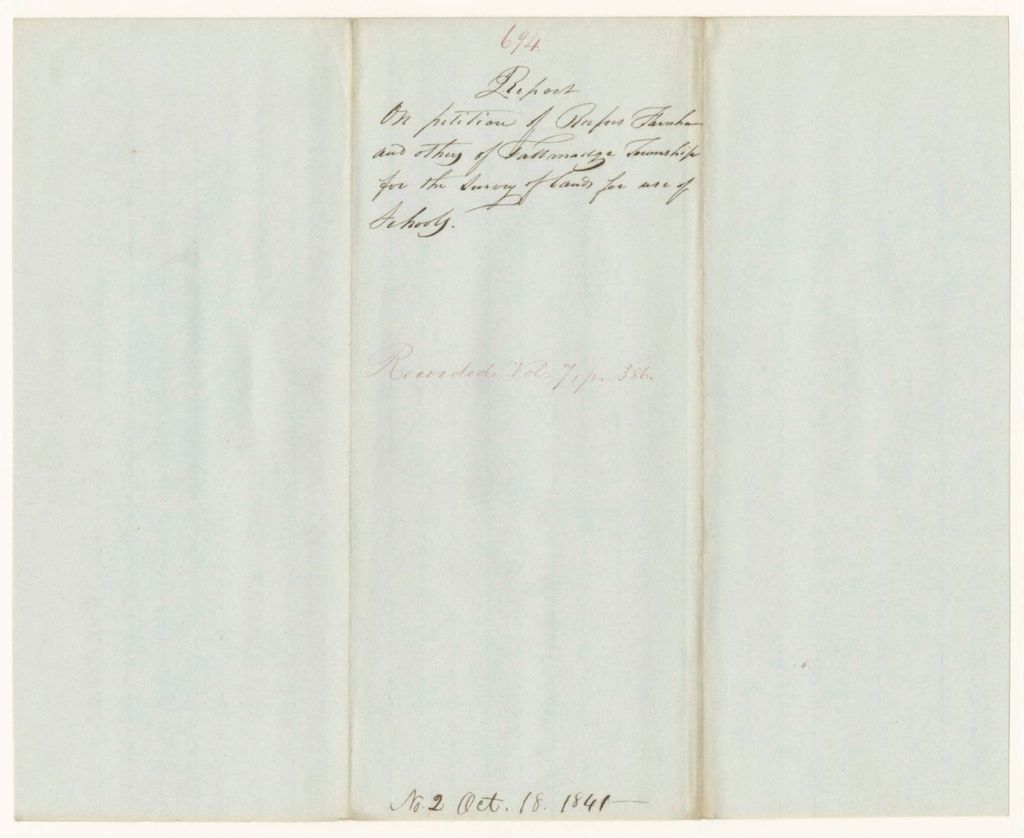 694.
Report
On petition of Rufus Farnham
and others of Tallmadge Township
for the Survey of Lands for use of
Schools.
Recorded Vol. 7, p. 386.
No. 2 Oct. 18. 1841—